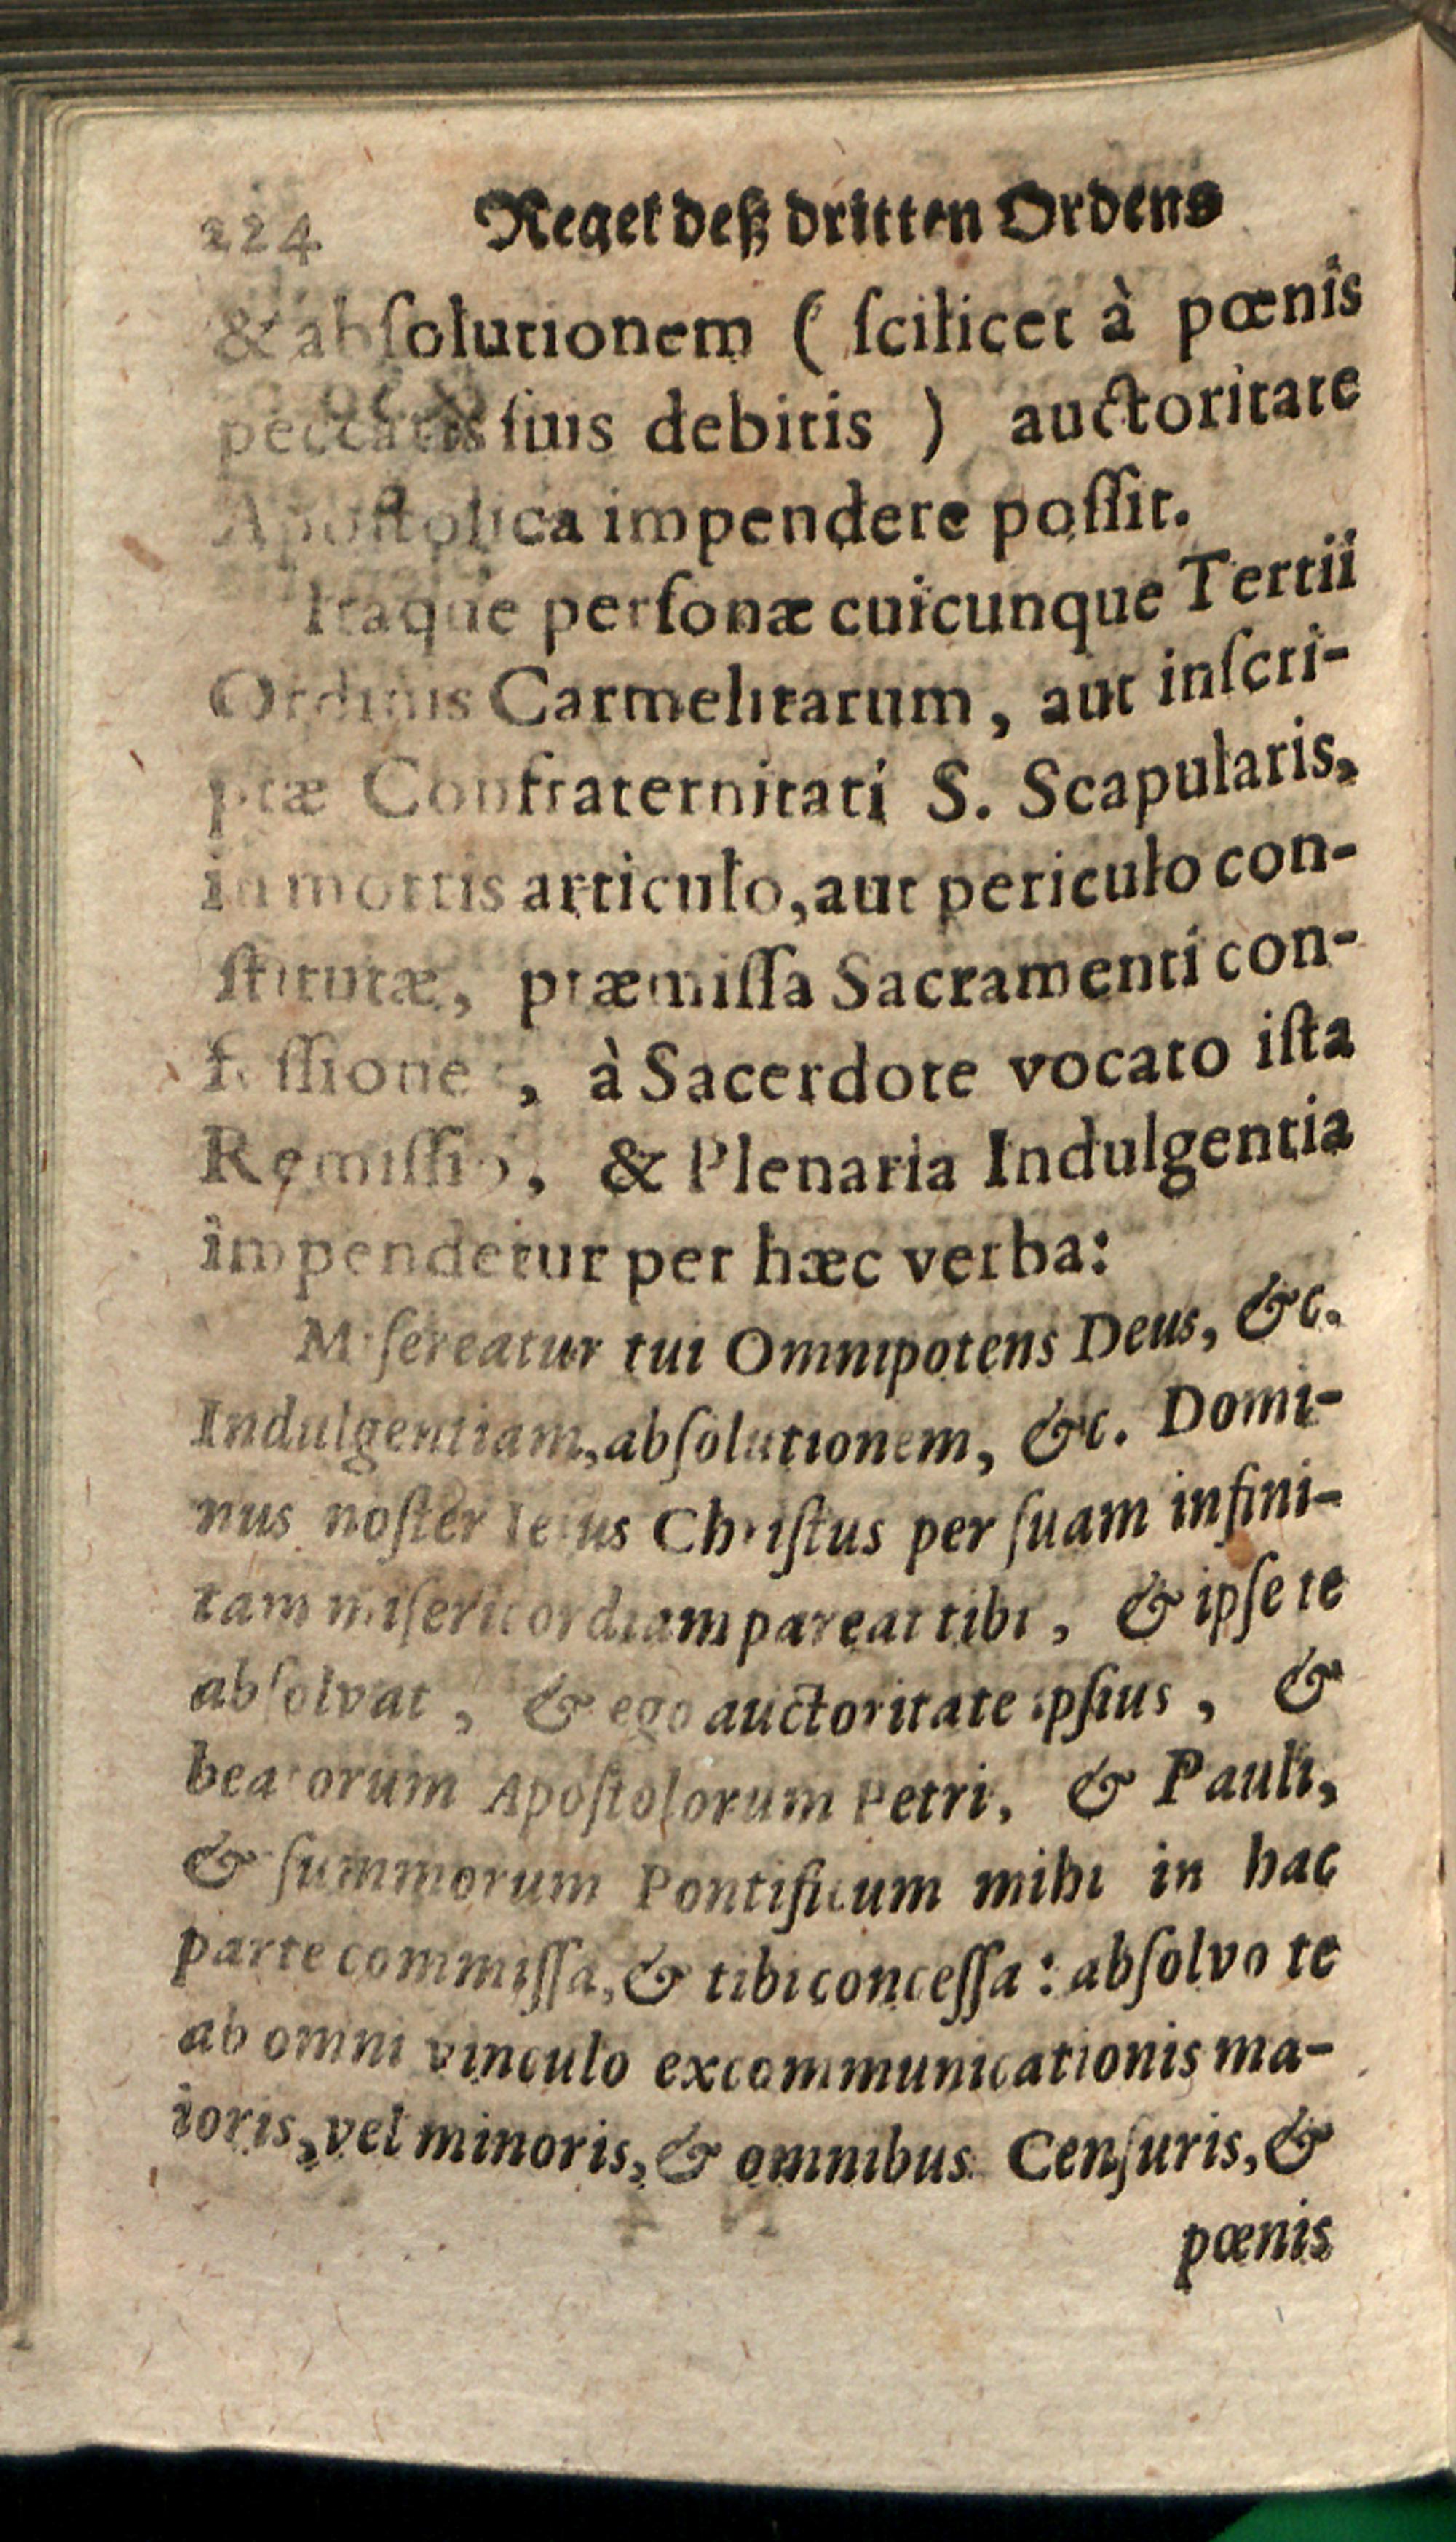 224 Regel deß dritten Ordens
& abſolutionem ( ſcilicet à pœnis
peccatis ſuis debitis ) auctoritate
Apoſtolica impendere poſſit.
Itaque perſonæ cuicunque Tertii
Ordinis Carmelitarum, aut inſcri-
ptæ Confraternitati S. Scapularis,
in mortis articulo, aut periculo con-
ſtitutæ, præmiſſa Sacramenti con-
feſſione, à Sacerdote vocato iſta
Remiſſio, & Plenaria Indulgentia
impendetur per hæc verba:
Miſereatur tui Omnipotens Deus, &c.
Indulgentiam, abſolutionem, &c. Domi-
nus noſter Ieſus Chriſtus per ſuam infini-
tam miſericordiam pareat tibi, & ipſe te
abſolvat, & ego auctoritate ipſius, &
beatorum Apoſtolorum Petri, & Pauli,
& ſummorum Pontificum mihi in hac
parte commiſſa, & tibi conceſſa: abſolvo te
ab omni vinculo excommunicationis ma-
ioris, vel minoris, & omnibus Cenſuris, &
pœnis